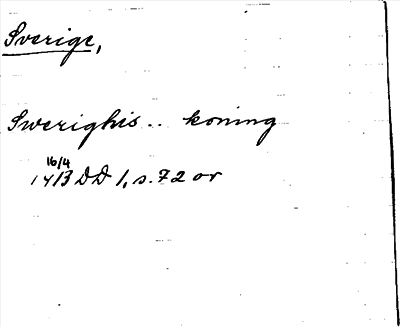 Sverige,
Swerighis .. koning
16/4
1413 DD 1, s. 72 or